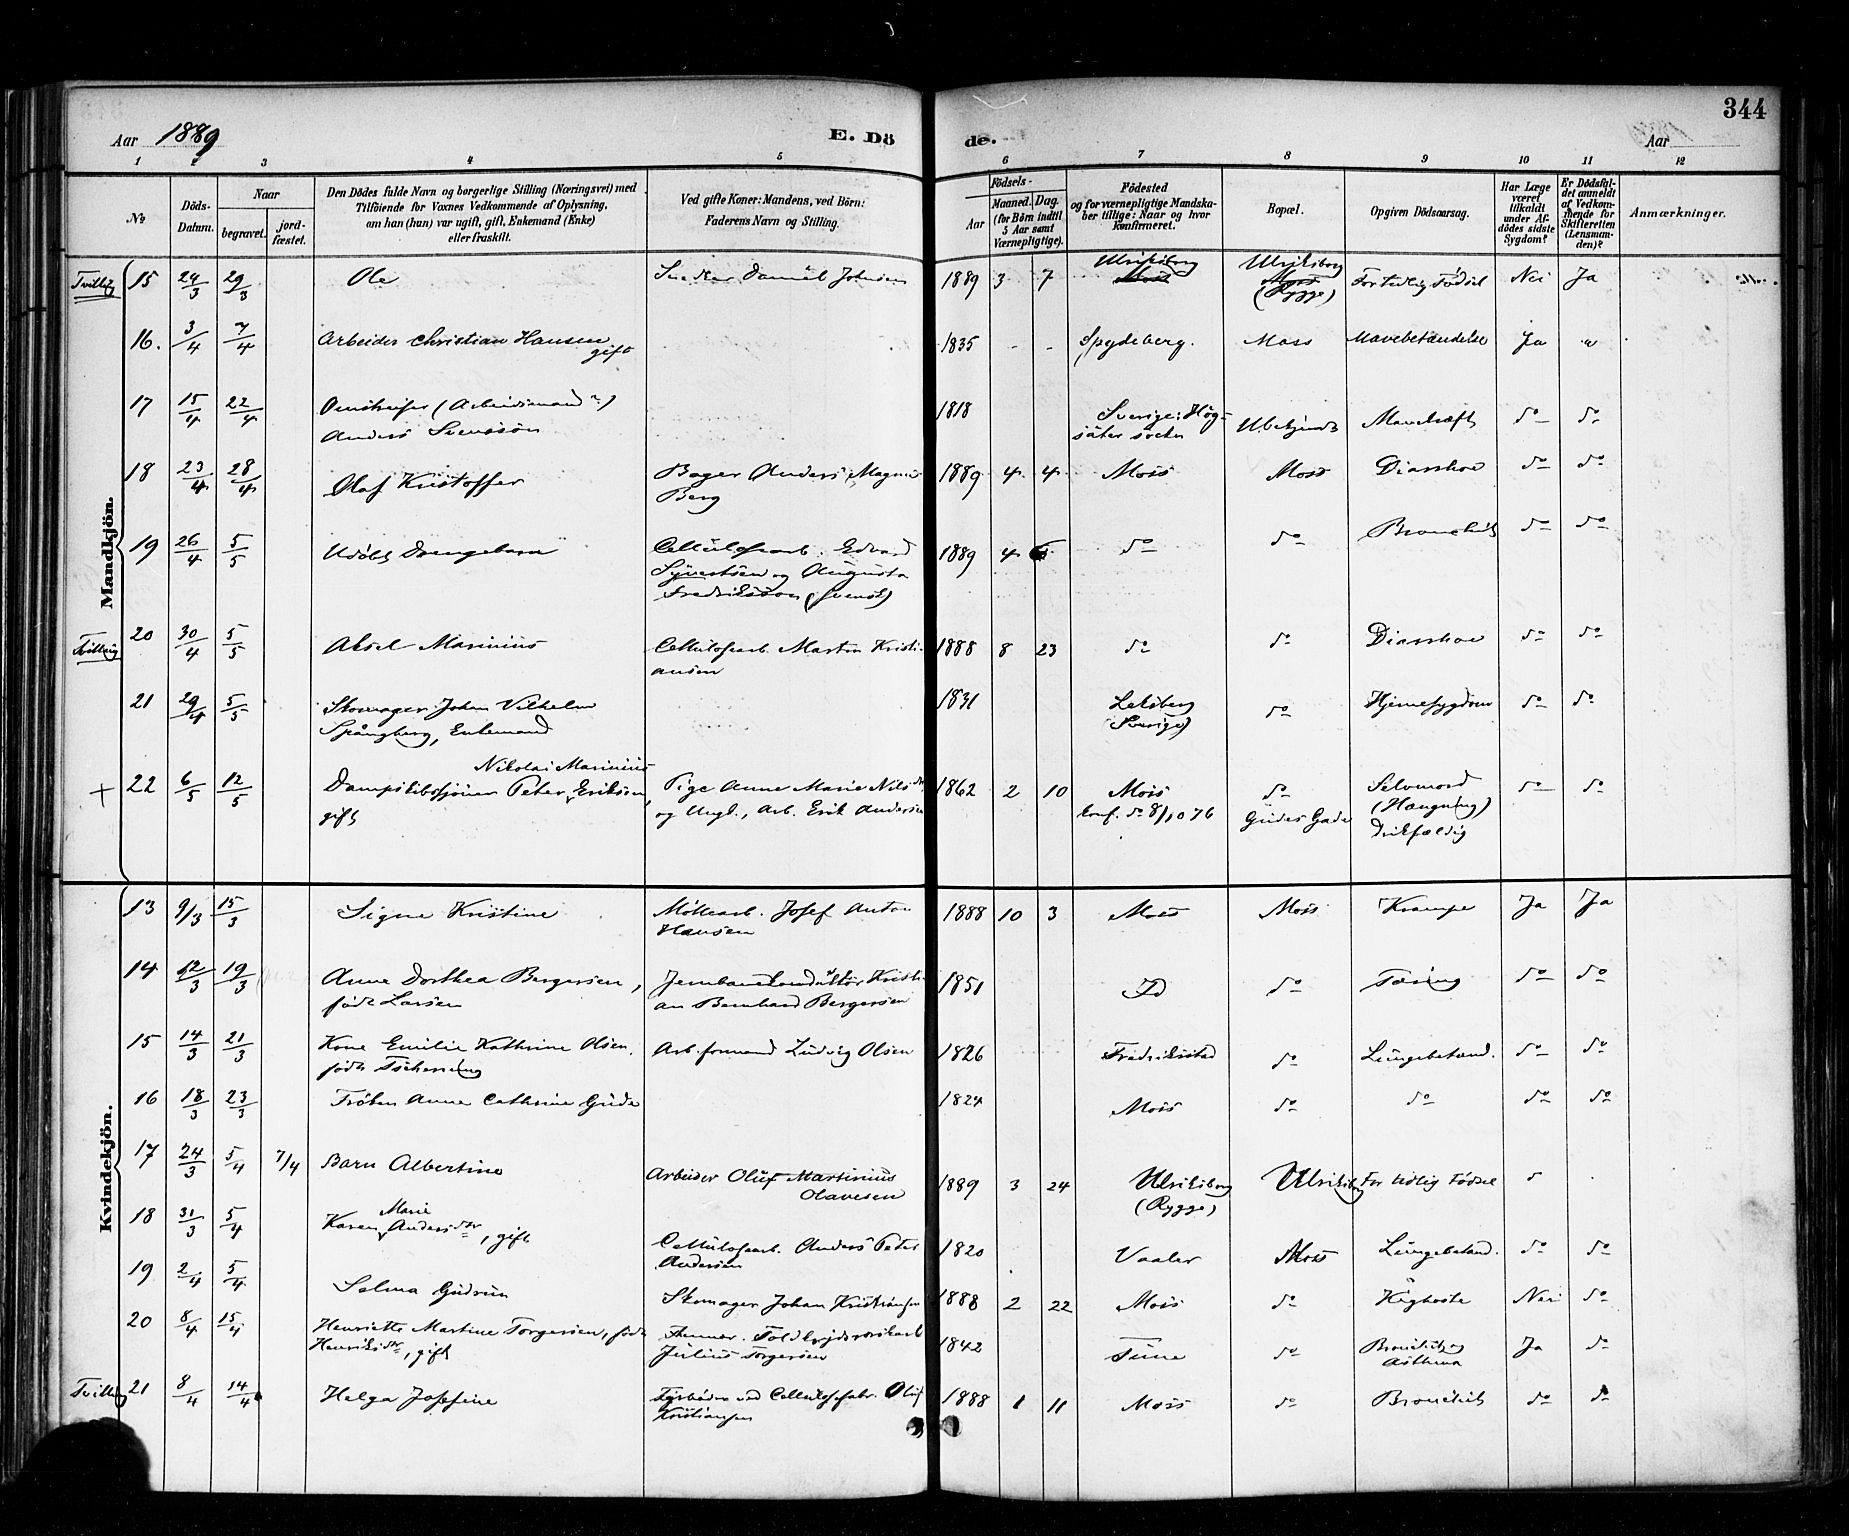 344
Aar 1889
E. Dö
de.
Aar
1 2 3 4 5 6 7 8 9 10 11 12
No
Döds-
Datum.
Naar
begravet.
jord-
fæstet.
Den Dödes fulde Navn og borgerlige Stilling (Næringsvei) med
Tilföiende for Voxnes Vedkommende af Oplysning,
om han (hun) var ugift, gift, Enkemand (Enke)
eller fraskilt.
Ved gifte Koner: Mandens, ved Börn:
Faderens Navn og Stilling.
Födsels-
Aar
Maaned. Dag.
(for Börn indtil
5 Aar samt
Værnepligtige).
Födested
og for værnepligtige Mandska-
ber tillige: Naar og hvor
konfirmeret.
Bopæl.
Opgiven Dödsaarsag.
Har Læge
været
tilkaldt
under Af-
dödes sidste
Sygdom?
Er Dödsfal-
det anmeldt
af Vedkom-
mende for
Skifteretten
(Lensman-
den)?
Anmærkninger.
Mandkjön.
Tvilling 15 24/3 29/3 Ole Snedker Daniel Johnsen 1889 3 7 Ulriksborg Moss Ulriksborg Moss (Rygge) For tidlig Fødsel Nei Ja
16. 3/4 7/4 Arbeider Christian Hansen 1835 - - Spydeberg. Moss Mavebetændelse Ja "
gift
17 15/4 22/4 (Arbeidsmand?) 1818 Sverige: Høg- Ubekjendt Mavekræft do do
Anders Svensson säter socken
18 23/4 28/4 Olaf Kristoffer Bager Anders Magnus 1889 4 4 Moss Moss Diarrhoe do do
Berg
19 26/4 5/5 Udøbt Drengebarn Cellulosearb. Edvard 1889 4 do do Bronchit do do
Syvertsen og Augusta
Fredriksson (svensk)
Tvilling 20 30/4 5/5 Aksel Marinius Cellulosearb. Martin Kristi- 1888 8 23 do do Diarrhoe do do
ansen
21 29/4 5/5 Skomager Johan Vilhelm 1831 Lekeberg do Hjernesygdom do do
Spångberg, Enkemand (Sverige)
Nikolai Marinius
+ 22 6/5 12/5 Dampskibsfyrbøter Peter Eriksen, Pige Anne Marie Nilsdtr 1862 2 10 Moss do Selvmord do do
gift og Ungk., Arb. Erik Andersen konf. do 8/10 76 Gudes Gade (Hængning)
Drikfældig
Kvindekjön.
13 9/3 15/3 Signe Kristine Møllearb. Josef Anton 1888 10 3 Moss Moss Krampe Ja Ja
Hansen
14 12/3 19/3 Anne Dorthea Bergersen, Jernbanekonduktør Kristi- 1851 Id do Tæring do do
født Larsen an Bernhard Bergersen
15 14/3 21/3 Kone Emilie Kathrine Olsen, Arb.formand Ludvig Olsen 1826 Fredriksstad do Lungebetænd. do do
født Tscherning
16 18/3 23/3 Frøken Anne Cathrine Gude 1824 Moss do do do do
17 24/3 5/4 7/4 Barn Albertine Arbeider Oluf Martinius 1889 3 24 Ulriksborg Ulriksborg For tidlig Fødsel
Olavesen (Rygge)
18 31/3 5/4 Karen Marie Andersdtr, gift Cellulosearb. Anders Peter 1820 Vaaler Moss Lungebetænd. do do
Andersen
19 2/4 5/4 Selma Gudrun Skomager Johan Kristiansen 1888 2 22 Moss do Kighoste Nei do
20 8/4 15/4 Henriette Martine Torgersen, født Tømmer. 1842 Tune do Bronchit og Ja do
Henriksdtr, gift Julius Torgersen Asthma
Tvilling 21 8/4 14/4 Helga Josefine Fyrbøder ved Cellulosefabr. Oluf 1888 1 11 Moss do Bronchit do do
Kristiansen